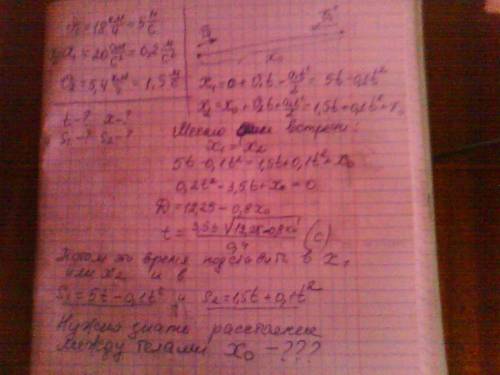 υ₁=18 км/ч=5 м/с
a₁=20 см/с²=0,2 м/с²
υ₂=5,4 км/ч=1,5 м/с
t-? x-?
S₁-? S₂-?
x₀
x₁=0+υ₁t-a₁t²/2=5t-0,1t²
x₂=x₀+υ₂t+a₂t²/2=1,5t+0,1t²+x₀
Место встречи:
x₁=x₂
5t-0,1t²=1,5t+0,1t²+x₀
0,2t²-3,5t+x₀=0
D=12,25-0,8x₀
t=(3,5±√12,25-0,8x₀)/0,4 (с)
Потом это время подставить в x₁
или x₂ и в
S₁=5t-0,1t² и S₂=1,5t+0,1t²
Нужно знать расстояние
между телами x₀-???